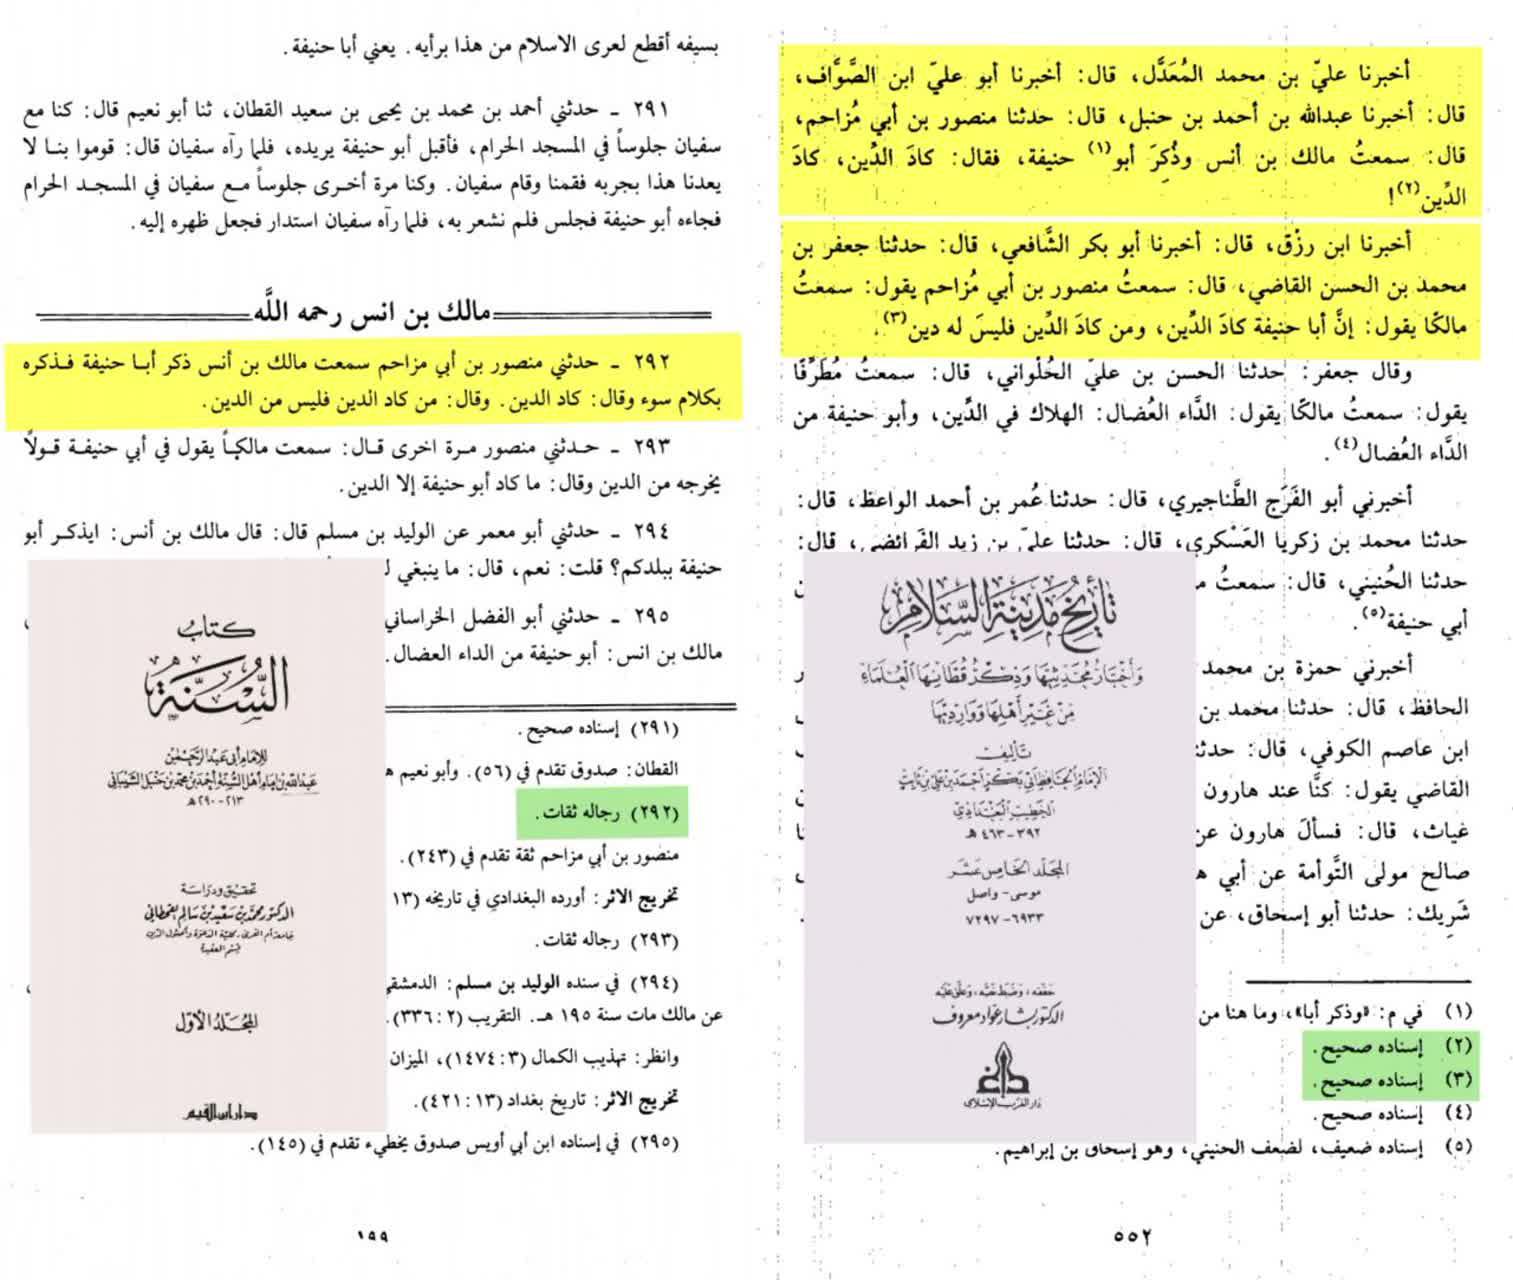 أخبرنا عليّ بن محمد المُعَدَّل، قال: أخبرنا أبو عليّ ابن الصَّوَّاف،
قال: أخبرنا عبدالله بن أحمد بن حنبل، قال: حدثنا منصور بن أبي مُزاحم،
قال: سمعتُ مالك بن أنس وذُكِرَ أبو(١) حنيفة، فقال: كادَ الدِّين، كادَ
الدِّين(٢)!
أخبرنا ابن رزْق، قال: أخبرنا أبو بكر الشَّافعي، قال: حدثنا جعفر بن
محمد بن الحسن القاضي، قال: سمعتُ منصور بن أبي مُزاحم يقول: سمعتُ
مالكًا يقول: إنَّ أبا حنيفة كادَ الدِّين، ومن كادَ الدِّين فليسَ له دين(٣).
وقال جعفر: حدثنا الحسن بن عليّ الحُلْواني، قال: سمعتُ مُطَرِّفًا
يقول: سمعتُ مالكًا يقول: الدَّاء العُضال: الهلاك في الدِّين، وأبو حنيفة من
الدَّاء العُضال(٤).
أخبرني أبو الفَرَج الطَّناجيري، قال: حدثنا عُمر بن أحمد الواعظ، قال:
حدثنا محمد بن زكريا العَسْكري، قال: حدثنا عليّ بن زيد الفَرائضي، قال:
حدثنا الحُنيني، قال: سمعتُ
أبي حنيفة(٥).
أخبرني حمزة بن محمد
الحافظ، قال: حدثنا محمد بن
ابن عاصم الكوفي، قال:
القاضي يقول: كنَّا عند هارون
غياث، قال: فسألَ هارون عن
صالح مولى التَّوأمة عن أبي
شَرِيك: حدثنا أبو إسحاق، عن
(١) في م: «وذكر أبا»، وما هنا من
(٢) إسناده صحيح.
(٣) إسناده صحيح.
(٤) إسناده صحيح.
(٥) إسناده ضعيف، لضعف الحنيني، وهو إسحاق بن إبراهيم.
٥٥٢
تأريخ مدينة السلام
وأخبار محدثيها وذكر قطانها العلماء
من غير أهلها ووارديها
تأليف
الإمام الحافظ أبي بكر أحمد بن علي بن ثابت
الخطيب البغدادي
٣٩٢-٤٦٣ هـ
المجلد الخامس عشر
موسى - واصل
٦٩٣٣-٧٢٩٧
حققه، وضبط نصه، وعلق عليه
الدكتور بشار عواد معروف
دار الغرب الإسلامي
بسيفه أقطع لعرى الاسلام من هذا برأيه. يعني أبا حنيفة.
٢٩١ ـ حدثني أحمد بن محمد بن يحيى بن سعيد القطان، ثنا أبو نعيم قال: كنا مع
سفيان جلوساً في المسجد الحرام، فأقبل أبو حنيفة يريده، فلما رآه سفيان قال: قوموا بنا لا
يعدنا هذا بجربه فقمنا وقام سفيان. وكنا مرة أخرى جلوساً مع سفيان في المسجد الحرام
فجاءه أبو حنيفة فجلس فلم نشعر به، فلما رآه سفيان استدار فجعل ظهره إليه.
مالك بن انس رحمه اللَّه
٢٩٢ ـ حدثني منصور بن أبي مزاحم سمعت مالك بن أنس ذكر أبا حنيفة فذكره
بكلام سوء وقال: كاد الدين. وقال: من كاد الدين فليس من الدين.
٢٩٣ ـ حدثني منصور مرة اخرى قال: سمعت مالكاً يقول في أبي حنيفة قولاً
يخرجه من الدين وقال: ما كاد أبو حنيفة إلا الدين.
٢٩٤ ـ حدثني أبو معمر عن الوليد بن مسلم قال: قال مالك بن أنس: ايذكر أبو
حنيفة ببلدكم؟ قلت: نعم، قال: ما ينبغي
٢٩٥ ـ حدثني أبو الفضل الخراساني
مالك بن انس: أبو حنيفة من الداء العضال.
(٢٩١) إسناده صحيح.
القطان: صدوق تقدم في (٥٦). وأبو نعيم
(٢٩٢) رجاله ثقات.
منصور بن أبي مزاحم ثقة تقدم في (٢٤٣).
تخريج الاثر: أورده البغدادي في تاريخه (١٣
(٢٩٣) رجاله ثقات.
(٢٩٤) في سنده الوليد بن مسلم: الدمشقي
عن مالك مات سنة ١٩٥ هـ. التقريب (٢: ٣٣٦).
وانظر: تهذيب الكمال (٣: ١٤٧٤)، الميزان
تخريج الاثر: تاريخ بغداد (١٣: ٤٢١).
(٢٩٥) في إسناده ابن أبي أويس صدوق يخطىء تقدم في (١٤٥).
١٩٩
كتاب
السنة
للإمام أبي عبد الرحمن
عبد الله بن إمام أهل السنة أحمد بن محمد بن حنبل الشيباني
٢١٣-٢٩٠ هـ
تحقيق ودراسة
الدكتور محمد بن سعيد بن سالم القحطاني
جامعة أم القرى - كلية الدعوة وأصول الدين
قسم العقيدة
المجلد الأول
دار ابن القيم